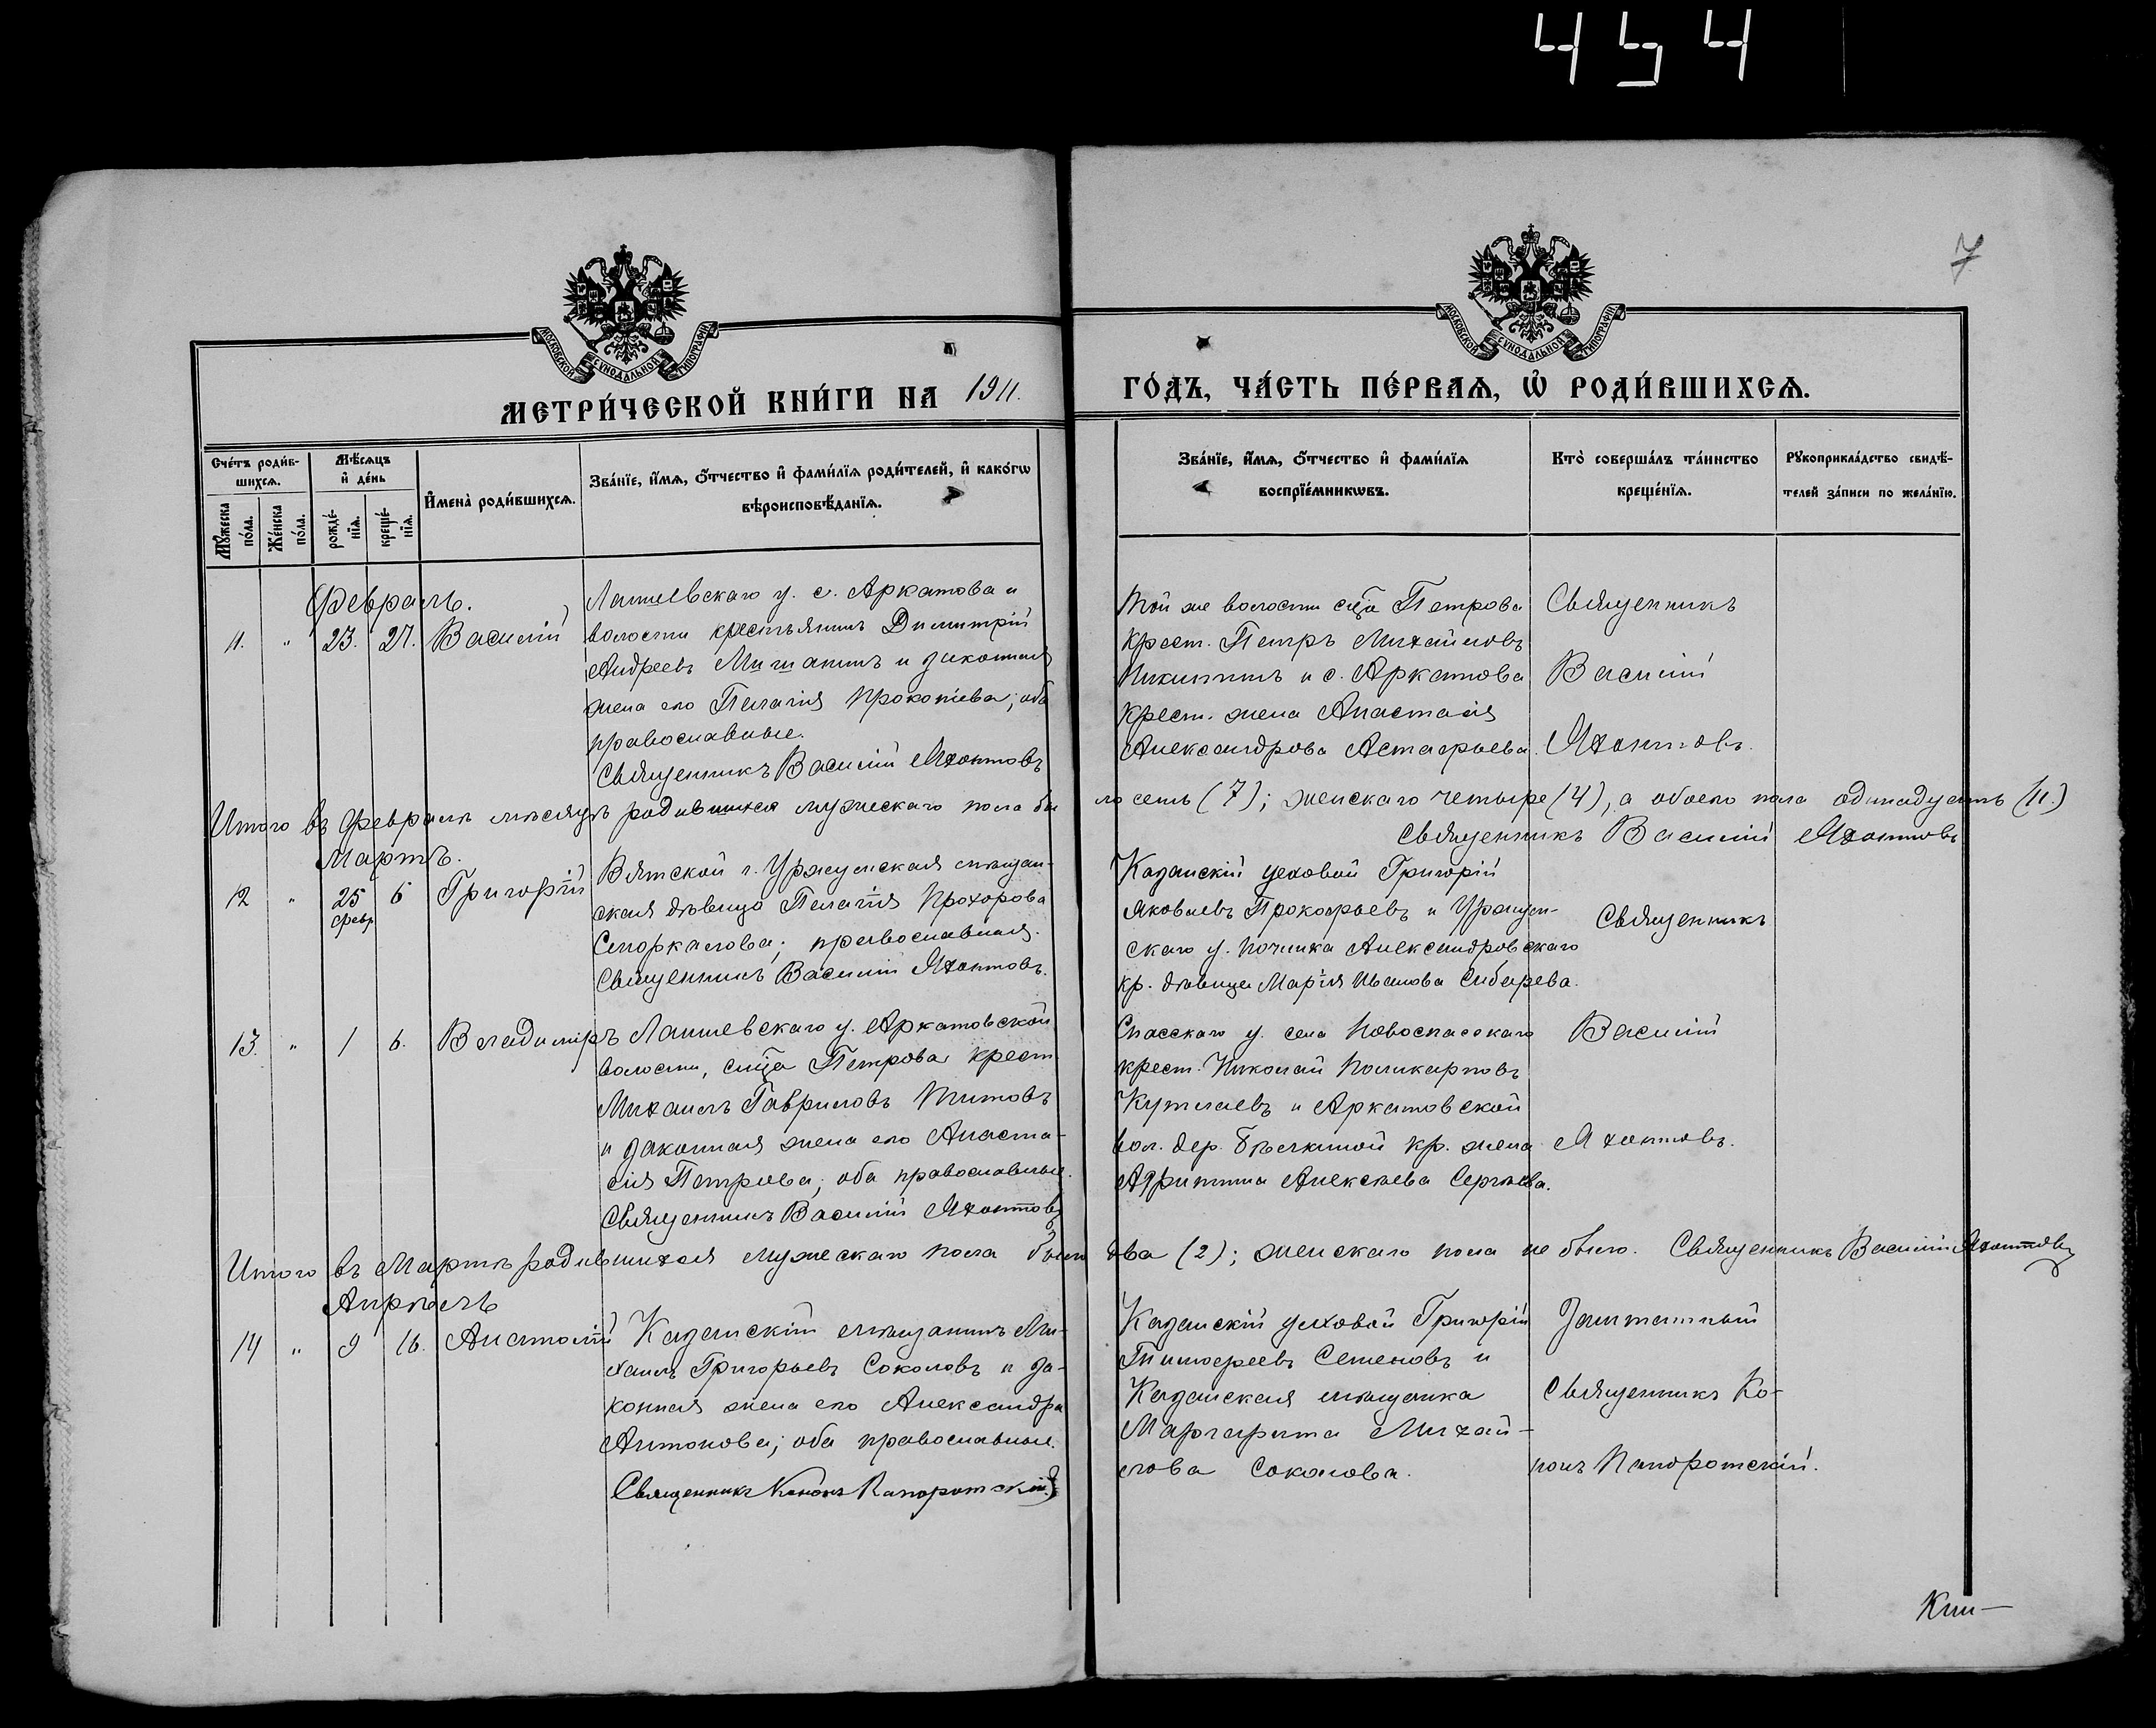 454
7
МЕТРИ́ЧЕСКОЙ КНИ́ГИ НА 1911.
ГО́ДЪ, ЧА́СТЬ ПЕ́РВАѦ, Ѿ РОДИ́ВШИХСѦ.
Сче́тъ роди́в-
шихсѧ.
Мꙋ́жеска по́ла.
Же́нска по́ла.
Мѣ́сѧцъ
и҆ де́нь
рожде́-
нїѧ.
креще́-
нїѧ.
И҆мена̀ роди́вшихсѧ.
Зва́нїе, и҆́мѧ, ѻ҆́тчество и҆ фами́лїѧ роди́телей, и҆ како́гѡ
вѣроисповѣ́данїѧ.
Зва́нїе, и҆́мѧ, ѻ҆́тчество и҆ фами́лїѧ
воспрїе́мникѡвъ.
Кто̀ соверша́лъ та́инство
креще́нїѧ.
Рꙋкоприкла́дство свидѣ́-
телей за́писи по жела́нїю.
Февраль.
11. " 23. 27. Василій
Лаишевскаго у. с. Аркатова и
волости крестьянинъ Димитрій
Андреевъ Мишанинъ и законная
жена его Пелагія Прокопіева; оба
православные.
Священникъ Василій Яхонтовъ
Той же волости сца Петрова
крест. Петръ Михайловъ
Никитинъ и с. Аркатова
крест. жена Анастасія
Александрова Астафьева.
Священникъ
Василій
Яхонтовъ.
Итого въ Февралѣ мѣсяцѣ родившихся мужескаго пола бы ло семь (7); женскаго четыре (4), а обоего пола одинадцать (11.)
Священникъ Василій Яхонтовъ
Мартъ.
12 " 25 февр 6 Григорій
Вятской г. Уржумская мѣщан-
ская дѣвица Пелагія Прохорова
православная.
Священникъ Василій Яхонтовъ.
Казанскій цеховой Григорій
Яковлевъ Прокофьевъ и Уржум-
скаго у. починка Александровскаго
кр. дѣвица Марія Иванова Сибирева.
Священникъ
13. " 1 6. Владиміръ
Лаишевскаго у. Аркатовской
волости, сца Петрова крест
Михаилъ Гавриловъ Титовъ
и законная жена его Анаста-
сія Петрова; оба православные.
Священникъ Василій Яхонтовъ
Спасскаго у. села Новоспасскаго
крест. Николай Поликарповъ
и Аркатовской
вол. дер. кр. жена
Алексѣева Сергѣева.
Василій
Яхонтовъ.
Итого въ Мартѣ родившихся мужескаго пола было два (2); женскаго пола не было. Священникъ Василій Яхонтовъ
Апрѣль
14 " 9 16. Анатолій
Казанскій мѣщанинъ Ми-
хаилъ Григорьевъ Соколовъ и за-
конная жена его Александра
Антонова; оба православные.
Священникъ Кононъ Папоротскій
Казанскій цеховой Григорій
Тимофеевъ Семеновъ и
Казанская мѣщанка
Маргарита Михай-
лова Соколова.
Заштатный
Священникъ Ко-
нонъ Папоротскій.